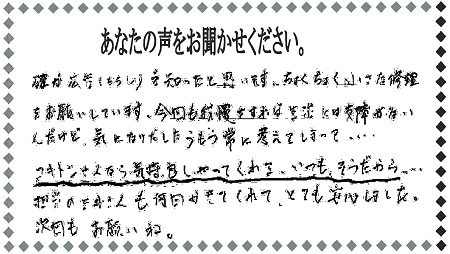 あなたの声をお聞かせください。
確か広告(ちらし)で知ったと思います。ちょくちょく小さな修理
をお願いしています。今回も
んだけど、気になりだしたらもう常に考えてしまって・・・
なら気持良くやってくれる。いつも、そうだから・・・
担当の さんも何回か来てくれて、とても しました。
次回もお願いね。